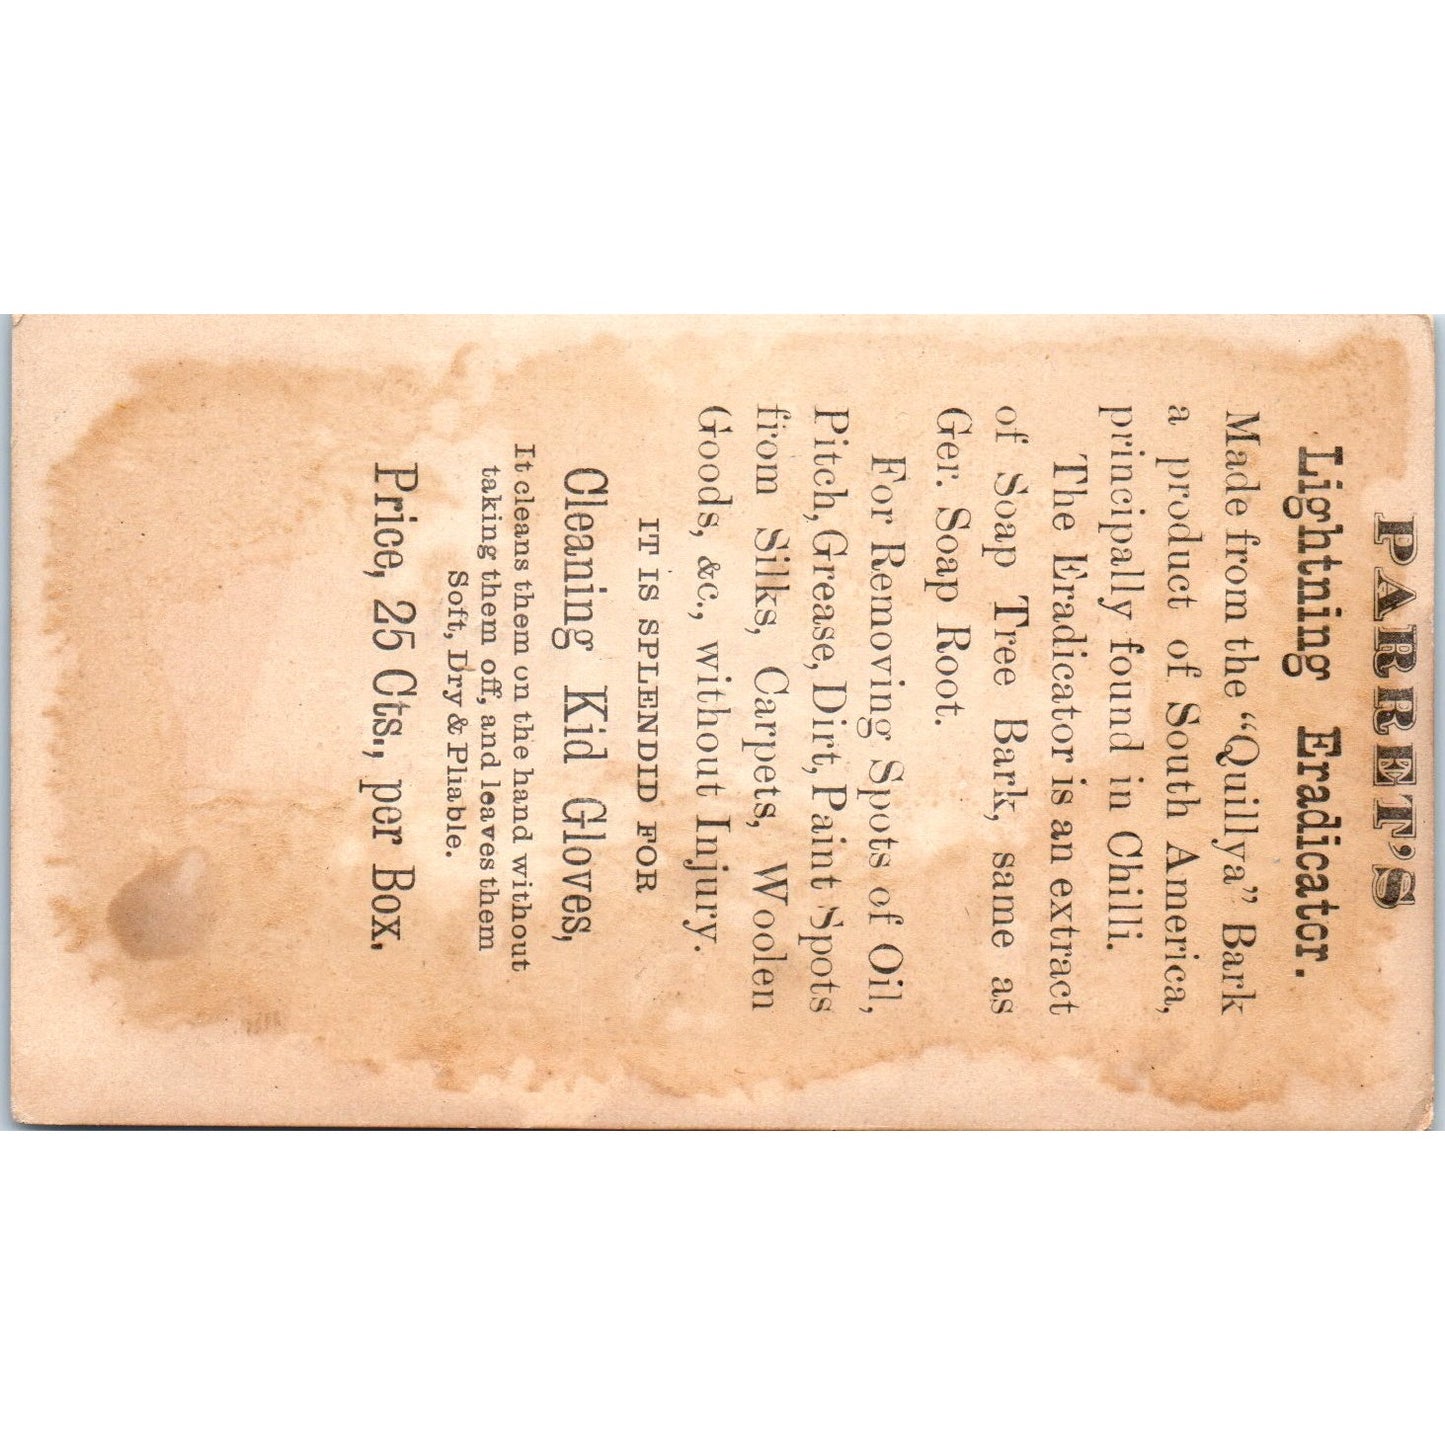 PARRET'S
Lightning Eradicator.
Made from the "Quillya" Bark
a product of South America,
principally found in Chilli.
The Eradicator is an extract
of Soap Tree Bark, same as
Ger. Soap Root.
For Removing Spots of Oil,
Pitch, Grease, Dirt, Paint Spots
from Silks, Carpets, Woolen
Goods, &c., without Injury.
IT IS SPLENDID FOR
Cleaning Kid Gloves,
It cleans them on the hand without
taking them off, and leaves them
Soft, Dry & Pliable.
Price, 25 Cts., per Box.